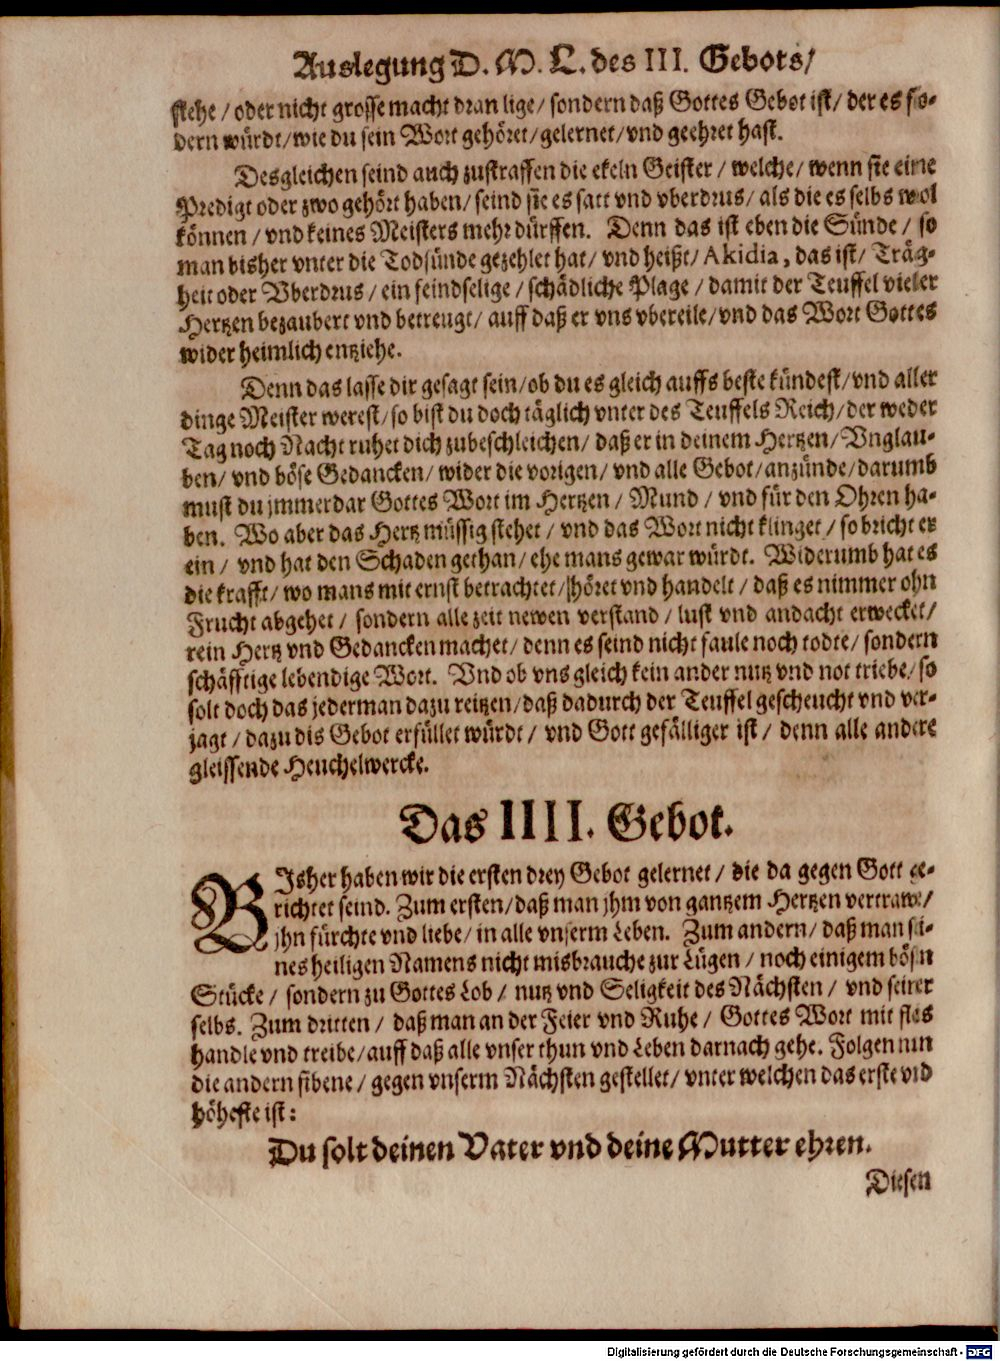 Auslegung D. M. L. des III. Gebots/
stehe / oder nicht grosse macht dran lige / sondern daß Gottes Gebot ist / der es fo-
dern würdt / wie du sein Wort gehöret / gelernet / vnd geehret hast.
Desgleichen seind auch zustraffen die ekeln Geister / welche / wenn sie eine
Predigt oder zwo gehört haben / seind sie es satt vnd vberdrus / als die es selbs wol
können / vnd keines Meisters mehr dürffen. Denn das ist eben die Sünde / so
man bisher vnter die Todsünde gezehlet hat / vnd heißt / Akidia, das ist / Träg-
heit oder Vberdrus / ein feindselige / schädliche Plage / damit der Teuffel vieler
Hertzen bezaubert vnd betreugt / auff daß er vns vbereile / vnd das Wort Gottes
wider heimlich entziehe.
Denn das lasse dir gesagt sein / ob du es gleich auffs beste kündest / vnd aller
dinge Meister werest / so bist du doch täglich vnter des Teuffels Reich / der weder
Tag noch Nacht ruhet dich zubeschleichen / daß er in deinem Hertzen / Vnglau-
ben / vnd böse Gedancken / wider die vorigen / vnd alle Gebot / anzünde / darumb
must du jmmerdar Gottes Wort im Hertzen / Mund / vnd für den Ohren ha-
ben. Wo aber das Hertz müssig stehet / vnd das Wort nicht klinget / so bricht er
ein / vnd hat den Schaden gethan / ehe mans gewar würdt. Widerumb hat es
die krafft / wo mans mit ernst betrachtet / höret vnd handelt / daß es nimmer ohn
Frucht abgehet / sondern alle zeit newen verstand / lust vnd andacht erwecket /
rein Hertz vnd Gedancken machet / denn es seind nicht faule noch todte / sondern
schäfftige lebendige Wort. Vnd ob vns gleich kein ander nutz vnd not triebe / so
solt doch das jederman dazu reitzen / daß dadurch der Teuffel gescheucht vnd ver-
jagt / dazu dis Gebot erfüllet würdt / vnd Gott gefälliger ist / denn alle andere
gleissende Heuchelwercke.
Das IIII. Gebot.
BIsher haben wir die ersten drey Gebot gelernet / die da gegen Gott ge-
richtet seind. Zum ersten / daß man jhm von gantzem Hertzen vertrawe /
jhn fürchte vnd liebe / in alle vnserm Leben. Zum andern / daß man sei-
nes heiligen Namens nicht misbrauche zur Lügen / noch einigem bösen
Stücke / sondern zu Gottes Lob / nutz vnd Seligkeit des Nächsten / vnd seiner
selbs. Zum dritten / daß man an der Feier vnd Ruhe / Gottes Wort mit fleis
handle vnd treibe / auff daß alle vnser thun vnd Leben darnach gehe. Folgen nun
die andern sibene / gegen vnserm Nächsten gestellet / vnter welchen das erste vnd
höheste ist:
Du solt deinen Vater vnd deine Mutter ehren.
Diesen
Digitalisierung gefördert durch die Deutsche Forschungsgemeinschaft - DFG